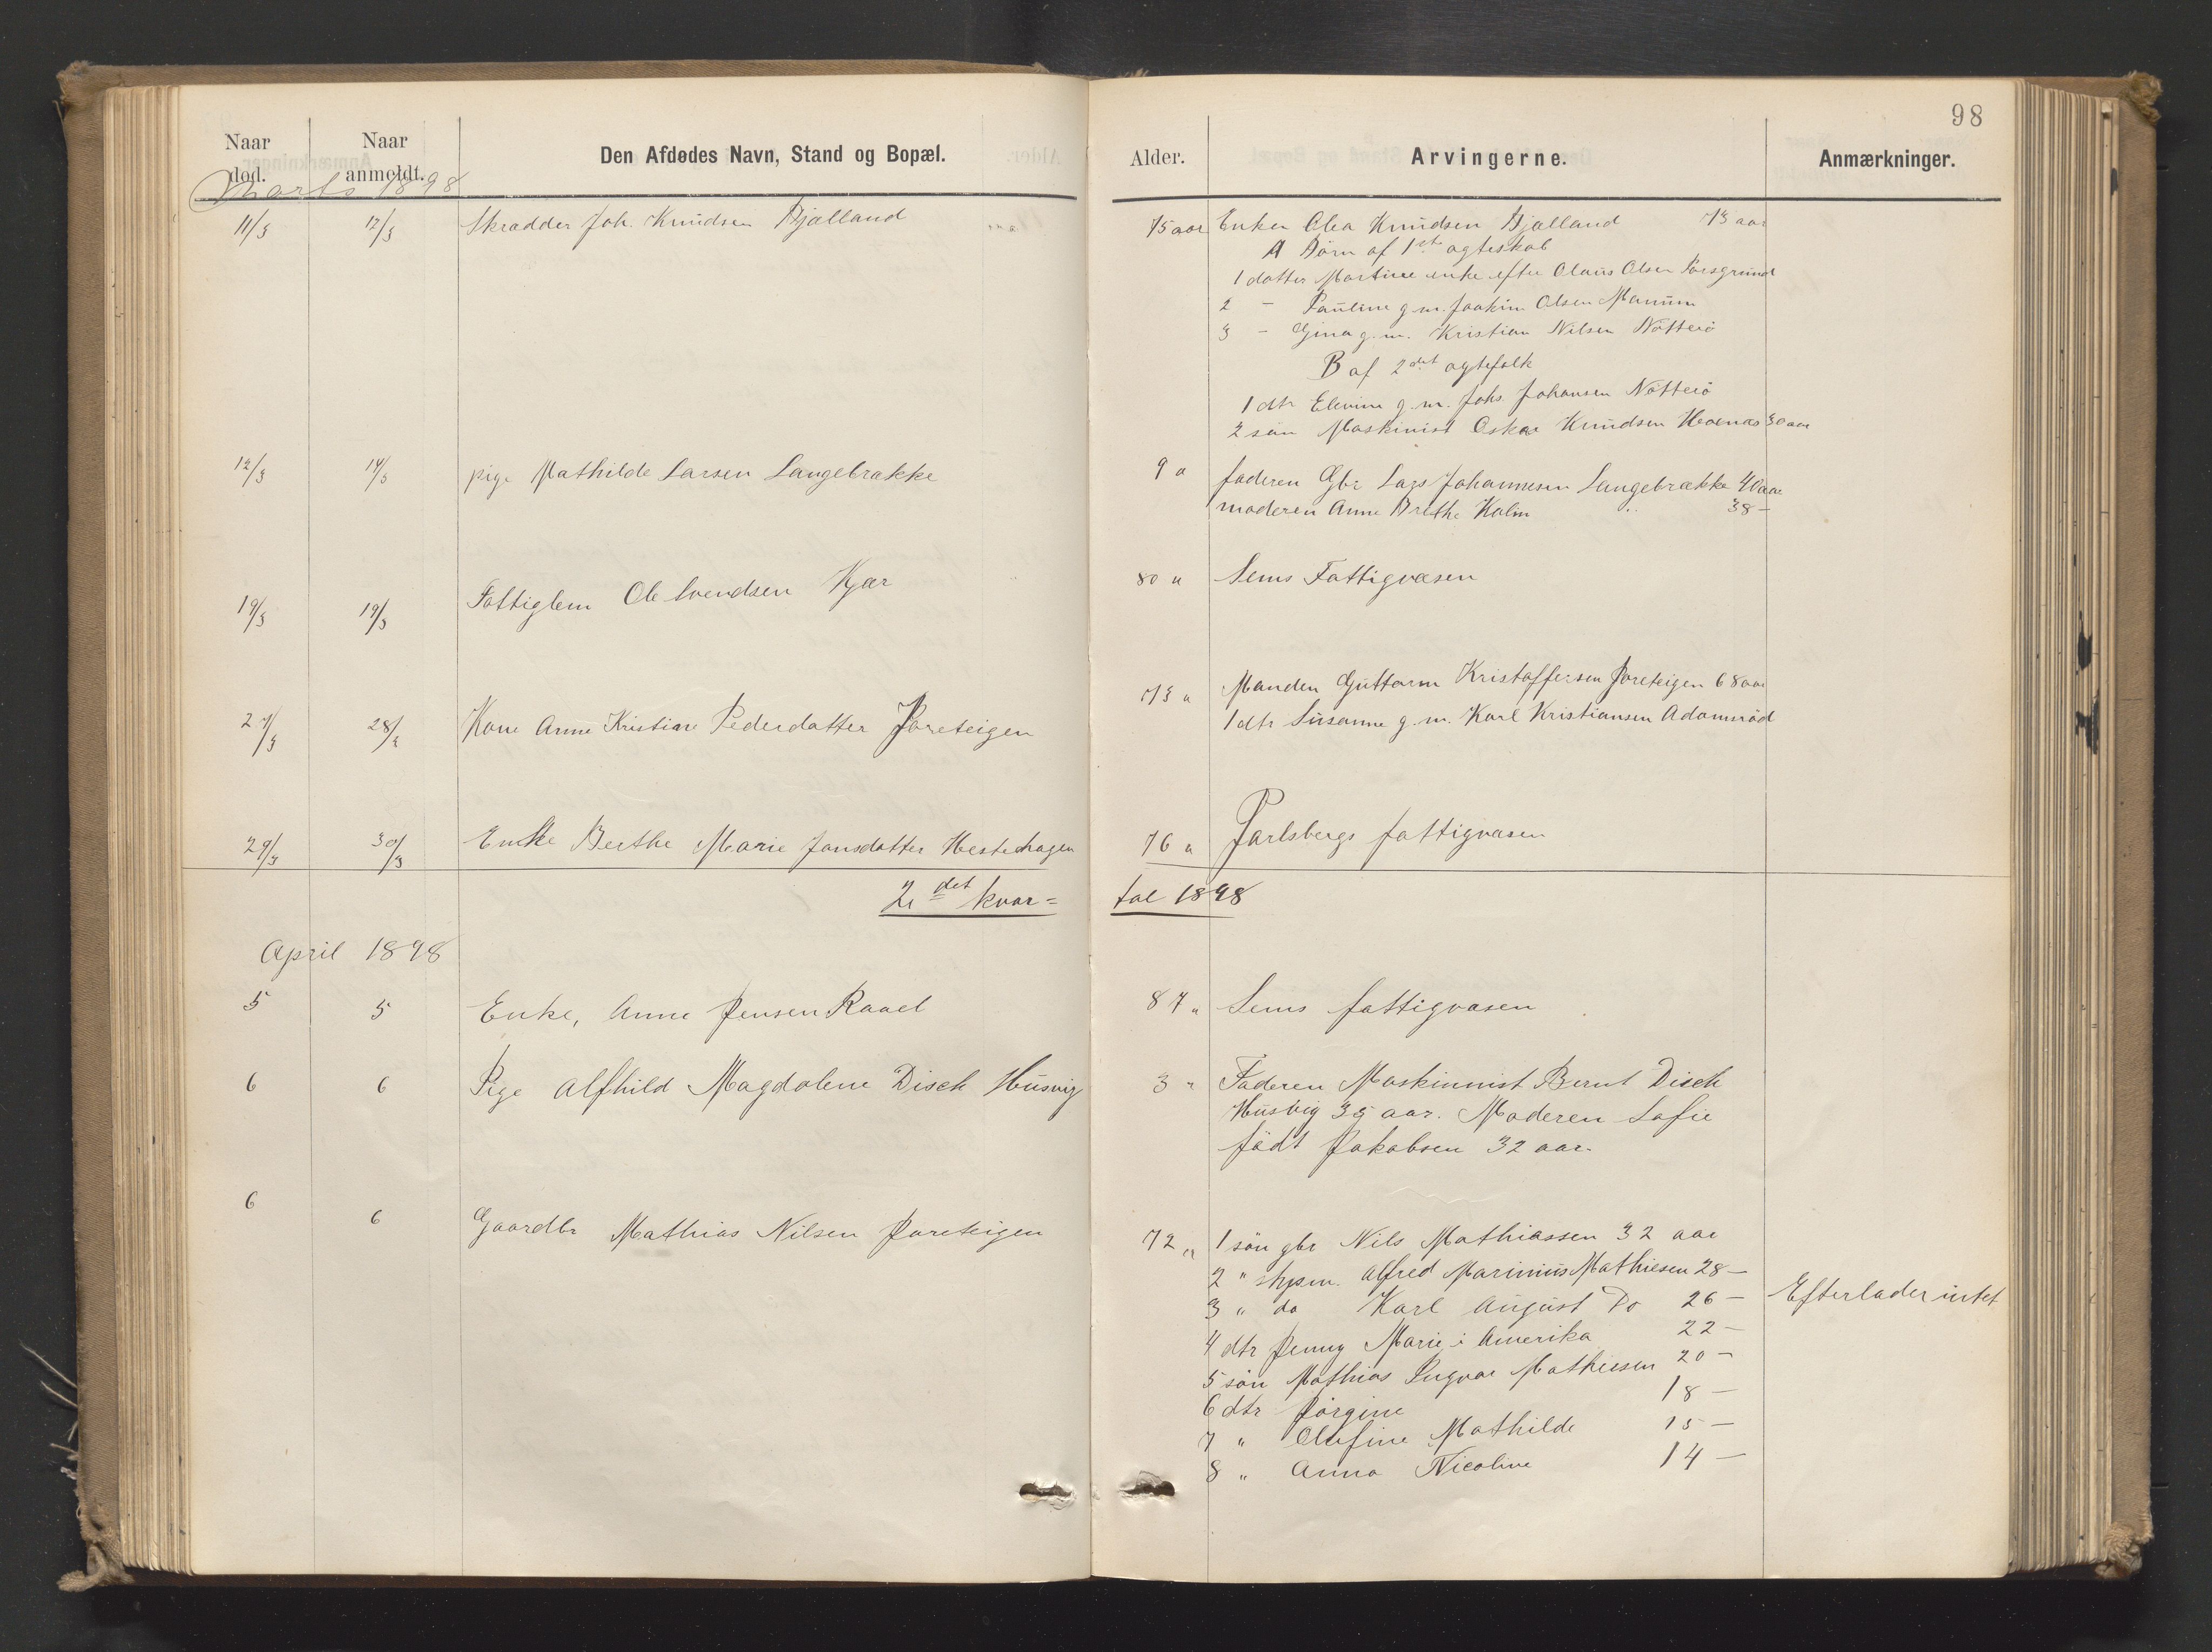 98
Naar død.
Naar anmeldt.
Den Afdødes Navn, Stand og Bopæl.
Alder.
Arvingerne.
Anmærkninger.
Marts 1898
11/3 12/3 Skrædder Joh. Knudsen Bjælland 75 aar Enken Olea Knudsen Bjælland 73 aar
A Børn af 1ste ægteskab
1 datter Martine enke efter Olaus Olsen Porsgrund
2 - Pauline g. m. Joakim Olsen Manum
3 - Gina g. m. Kristian Nilsen Nøtterø
B af 2det ægtefolk
1 dtr Elevine g. m. Johs. Johansen Nøtterø
2 søn Maskinist Oskar Knudsen Hoenæs 30 aar
12/3 14/3 pige Mathilde Larsen Langebrække 9 a faderen Gbr Lars Johannesen Langebrække 40 aar
moderen Anne Brethe Holm 38 -
19/3 19/3 Fattiglem Ole Svendsen Kjær 80 a Sems Fattigvæsen
27/3 28/3 Kone Anne Kristine Pedersdatter Jareteigen 73 a Manden Guttorm Kristoffersen Jareteigen 68 aar
1 dtr Susanne g. m. Karl Kristiansen Adamsrød
29/3 30/3 Enke Berthe Marie Jansdatter Hestehagen 76 a Jarlsbergs fattigvæsen
2det kvar= tal 1898
April 1898
5 5 Enke, Anne Jensen Raael 87 " Sems fattigvæsen
6 6 Pige Alfhild Magdalene Disch Husvig 3 " Faderen Maskinnist Bernt Disch
Husvig 35 aar. Moderen Sofie
født Jakobsen 32 aar.
6 6 Gaardbr Mathias Nilsen Jareteigen 72 " 1 søn gbr Nils Mathiassen 32 aar
2 " skpsm. Alfred Marinius Mathiesen 28 -
3 " do Karl August Do 26 - Efterlader intet
4 dtr Jenny Marie i Amerika 22 -
5 søn Mathias Ingvar Mathiesen 20 -
6 dtr Jørgine 18 -
7 " Olufine Mathilde 15 -
8 " Anna Nicoline 14 -